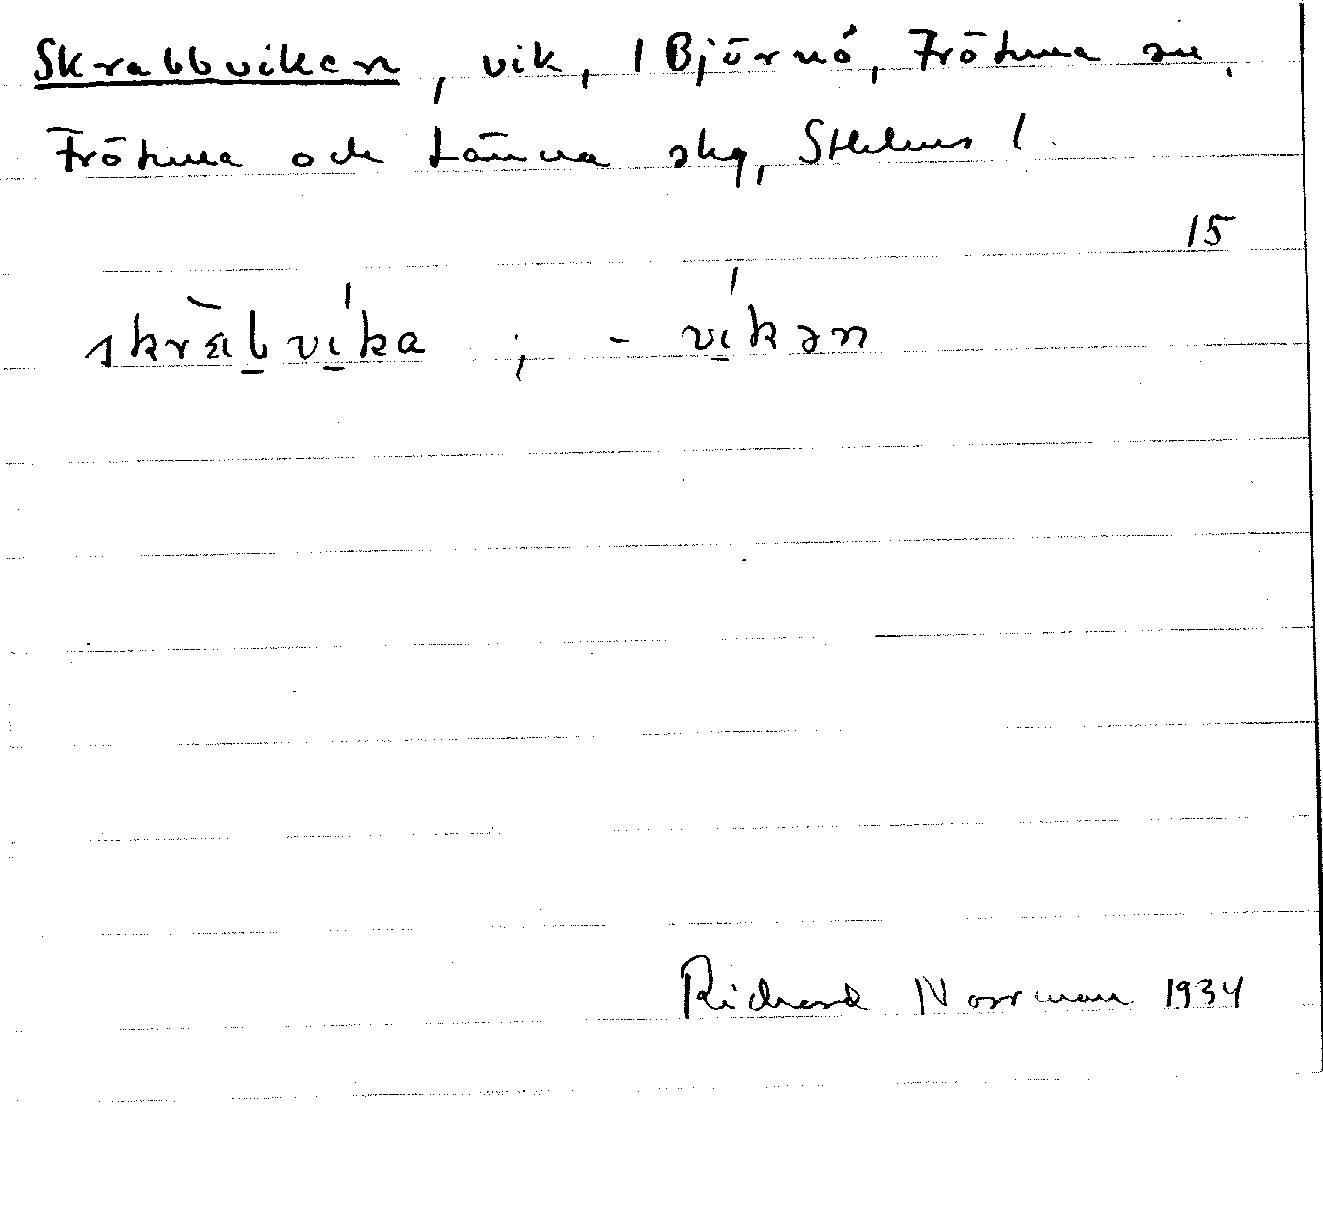 Skrabbviken, vik, 1 Björnö, Frötuna sn,
Frötuna och Länna skg, Sthlms l.
15
skràbvíka ; - víkən
Richard Norrman 1934